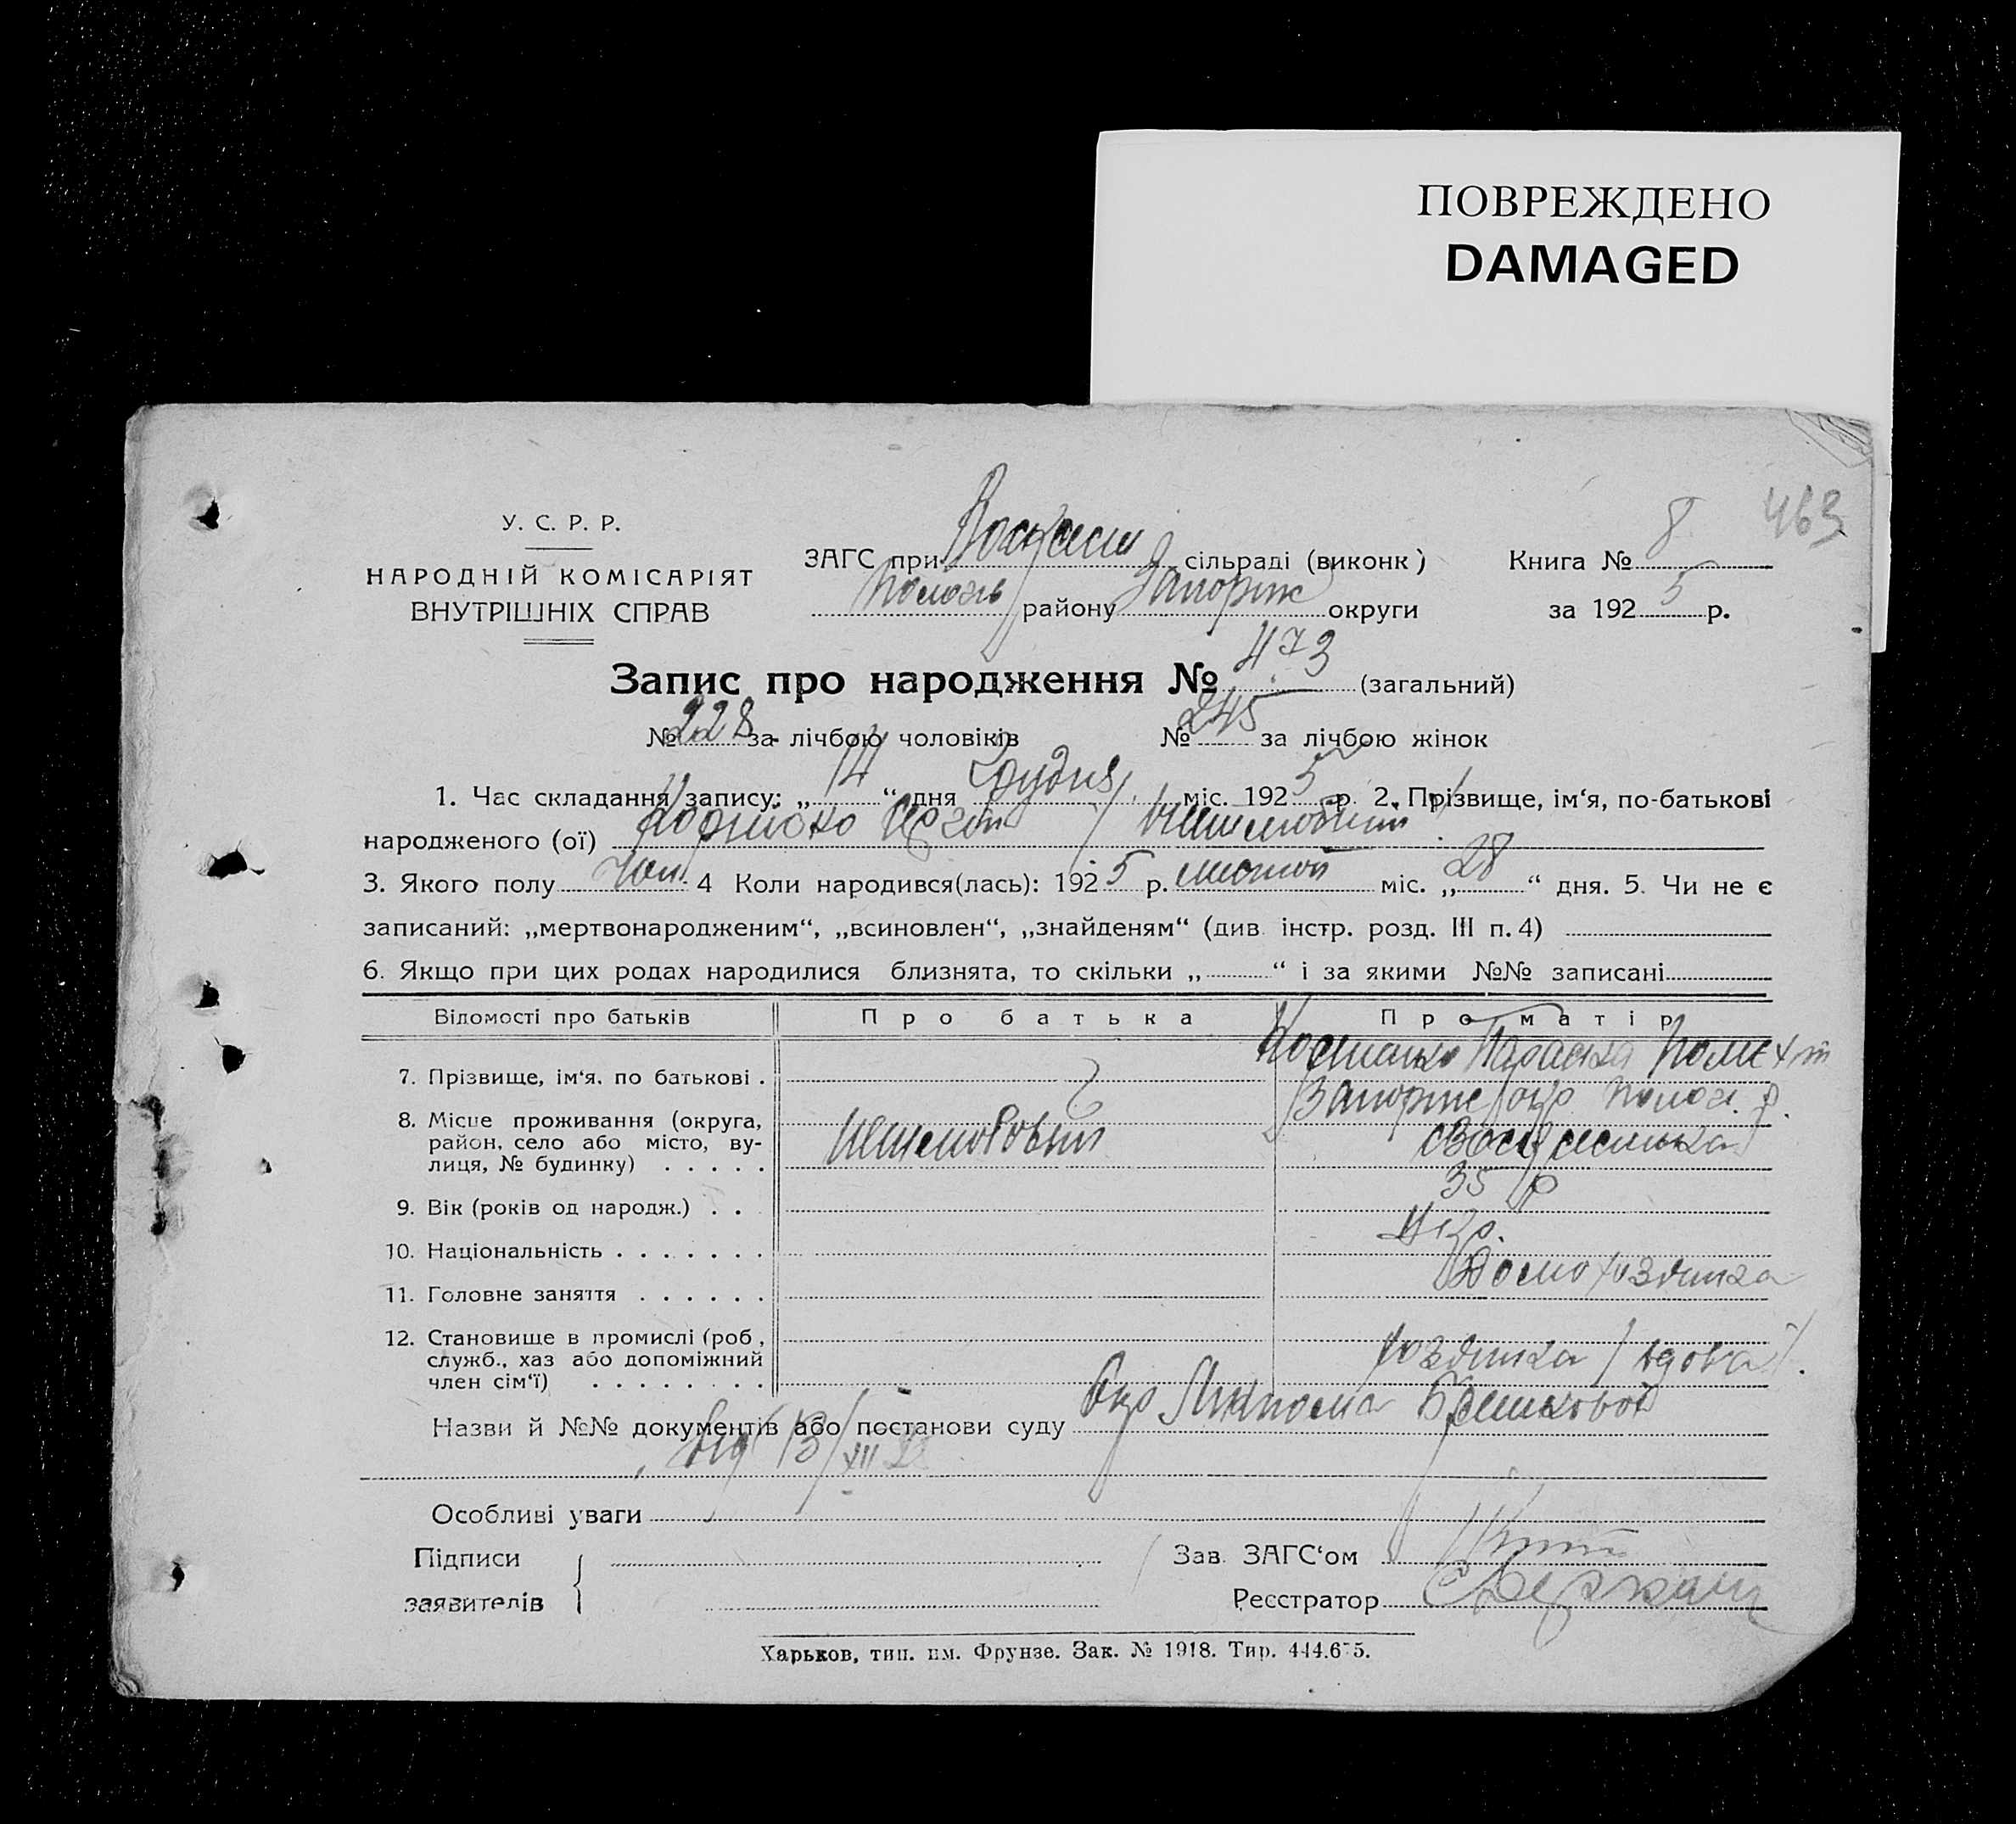 ПОВРЕЖДЕНО
DAMAGED
463
У. С. Р. Р.
НАРОДНІЙ КОМІСАРІЯТ
ВНУТРІШНІХ СПРАВ
ЗАГС при сільраді (виконк)
району Запоріж округи
Книга № 8
за 1925 р.
Запис про народження № 473 (загальний)
№ 228 за лічбою чоловіків № 245 за лічбою жінок
1. Час складання запису: „14“ дня Грудня міс. 1925 р. 2. Прізвище, ім‘я, по-батькові
народженого (ої)
3. Якого полу Чол. 4 Коли народився(лась): 1925 р. листоп міс. „28“ дня. 5. Чи не є
записаний: „мертвонародженим“, „всиновлен“, „знайденям“ (див. інстр. розд. III п. 4)
6. Якщо при цих родах народилися близнята, то скільки „ “ і за якими №№ записані
Відомості про батьків Про батька Про матір
7. Прізвище, ім‘я. по батькові . Параска
8. Місце проживання (округа, Запоріж окр Полог. р.
район, село або місто, ву-
лиця, № будинку) . . . . .
9. Вік (років од народж.) . . 35 р
10. Національність . . . . . . . Укр.
11. Головне заняття . . . . . . Домохозяйка
12. Становище в промислі (роб., хозяйка /вдова/.
служб., хаз або допоміжний
член сім‘ї) . . . . . . . .
Назви й №№ документів або постанови суду
від 13/XII
Особливі уваги
Підписи
заявителів
Зав. ЗАГС‘ом
Реєстратор
Харьков, тип. им. Фрунзе. Зак. № 1918. Тир. 444.675.